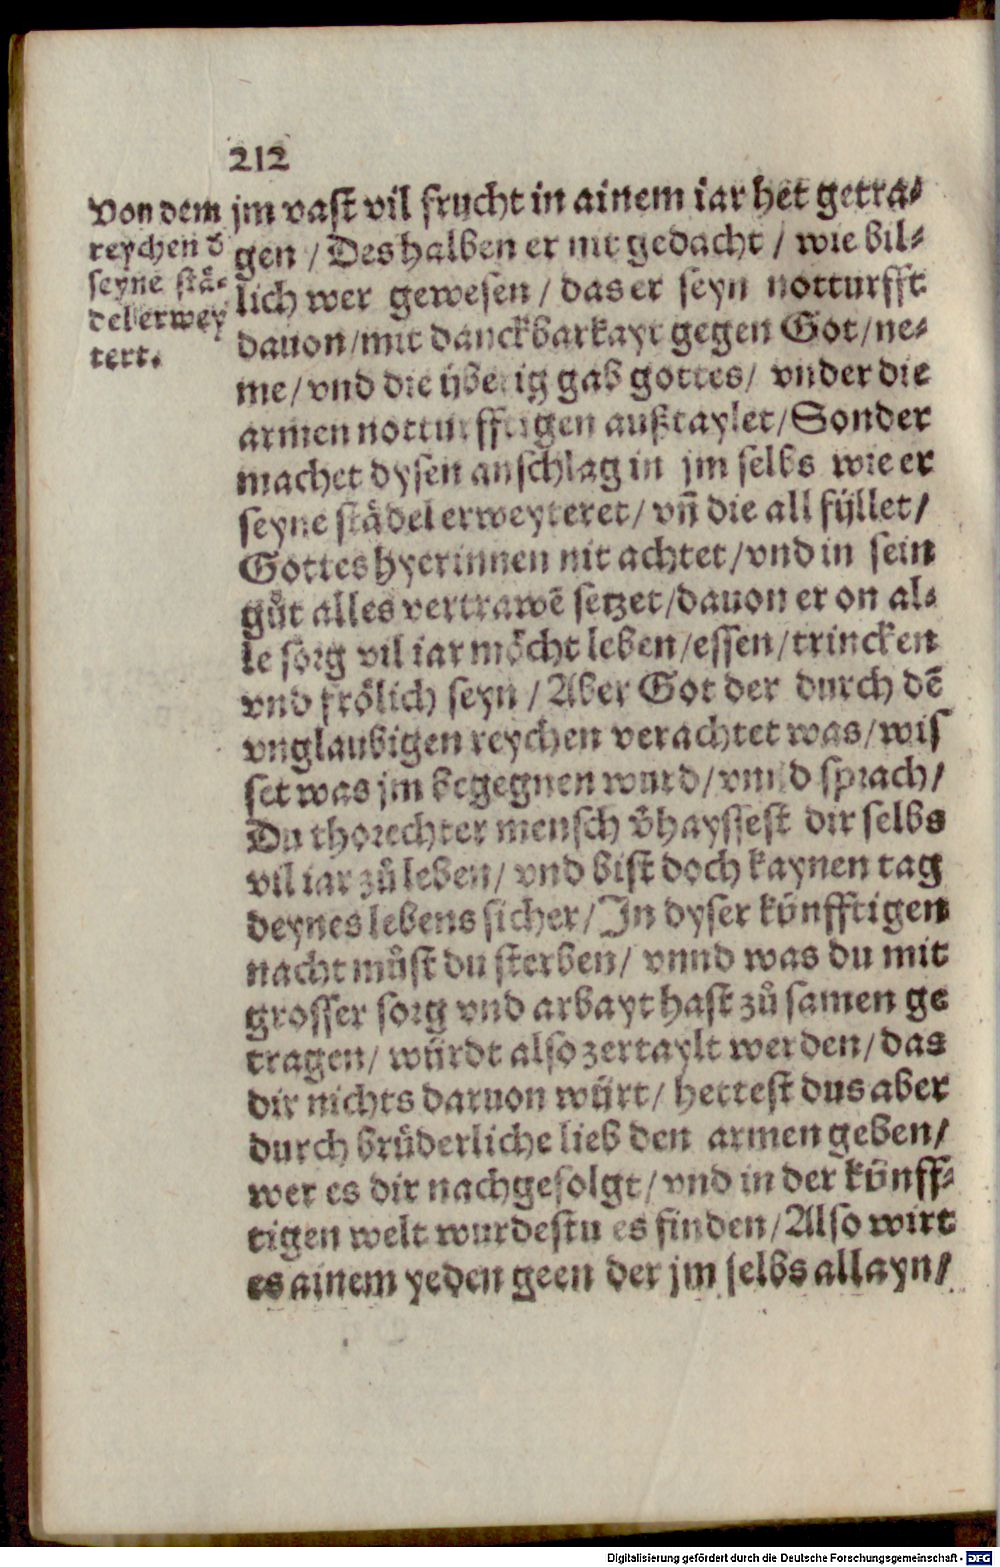 212
Von dem
reychen d̕
seyne stä-
del erwey
tert.
jm vast vil frucht in ainem iar het getra-
gen / Des halben er nit gedacht / wie bil-
lich wer gewesen / das er seyn notturfft
dauon / mit danckbarkayt gegen Got / ne-
me / vnd die ÿberig gab gottes / vnder die
armen notturfftigen außtaylet / Sonder
machet dysen anschlag in jm selbs wie er
seyne städel erweyteret / vñ die all fÿllet /
Gottes hyerinnen nit achtet / vnd in sein
gůt alles vertrawẽ setzet / dauon er on al-
le sorg vil iar möcht leben / essen / trincken
vnd frölich seyn / Aber Got der durch dẽ
vnglaubigen reychen verachtet was / wis
set was jm begegnen wurd / vnnd sprach /
Du thorechter mensch v̈hayssest dir selbs
vil iar zů leben / vnd bist doch kaynen tag
deynes lebens sicher / In dyser künfftigen
nacht můst du sterben / vnnd was du mit
grosser sorg vnd arbayt hast zů samen ge
tragen / würdt also zertaylt werden / das
dir nichts daruon würt / hettest dus aber
durch brüderliche lieb den armen geben /
wer es dir nachgefolgt / vnd in der künff-
tigen welt wurdestu es finden / Also wirt
es ainem yeden geen der jm selbs allayn /
Digitalisierung gefördert durch die Deutsche Forschungsgemeinschaft - DFG